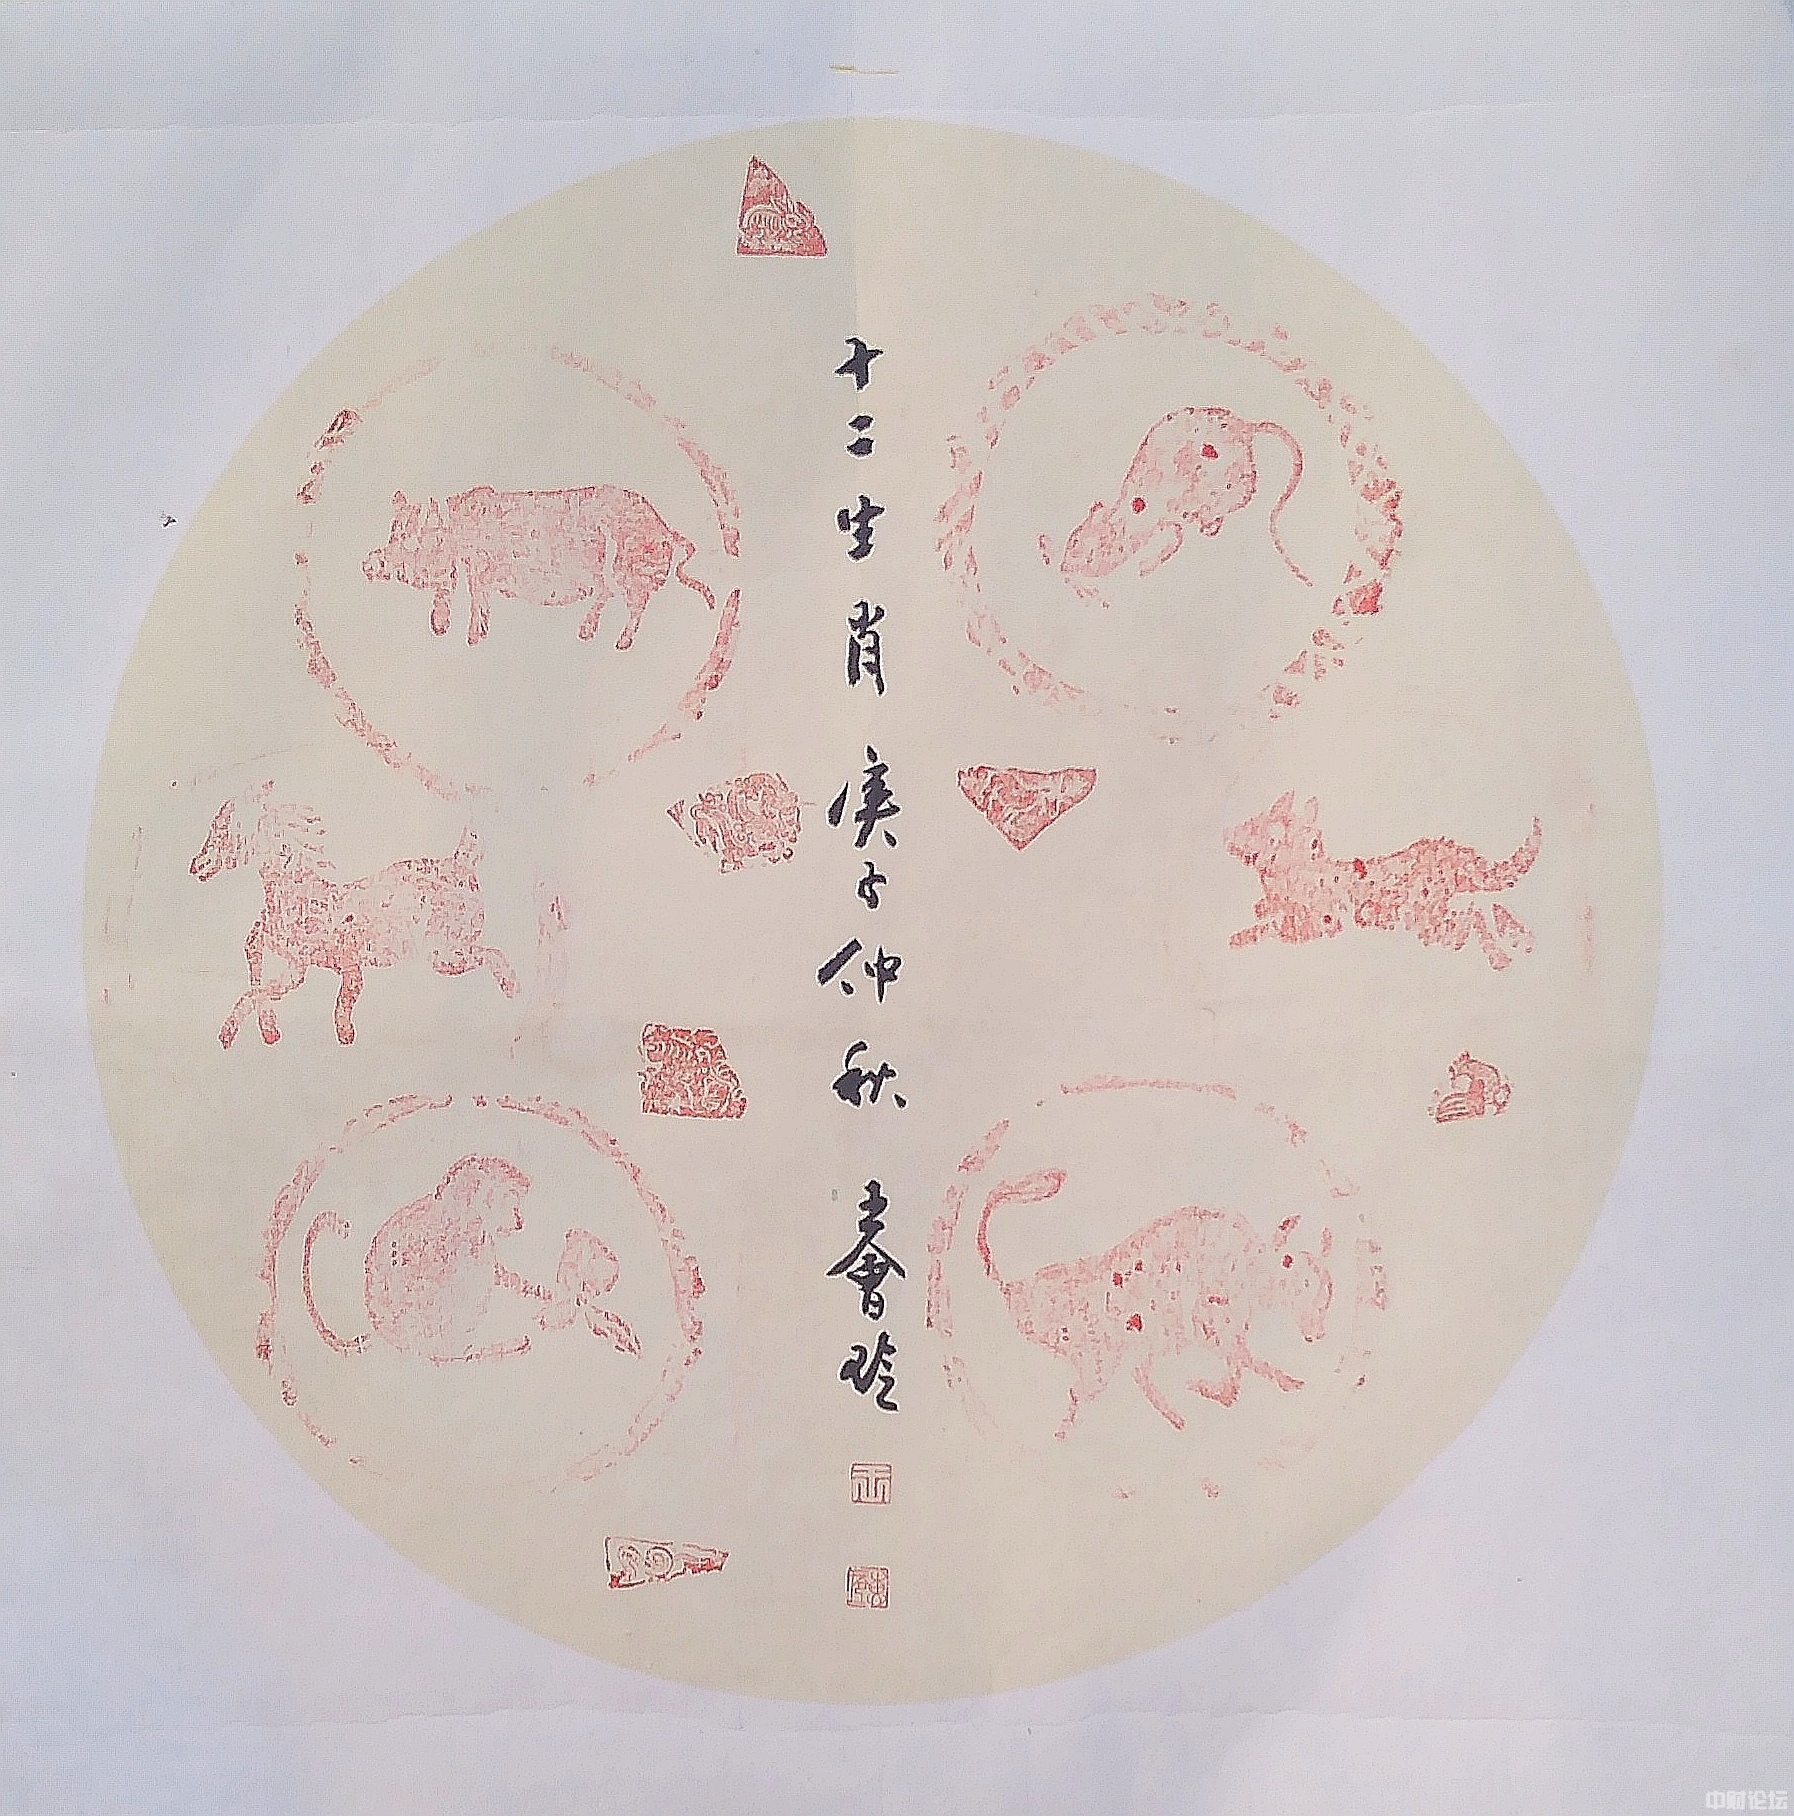 十二生肖 庚子仲秋 春会玲
中财论坛